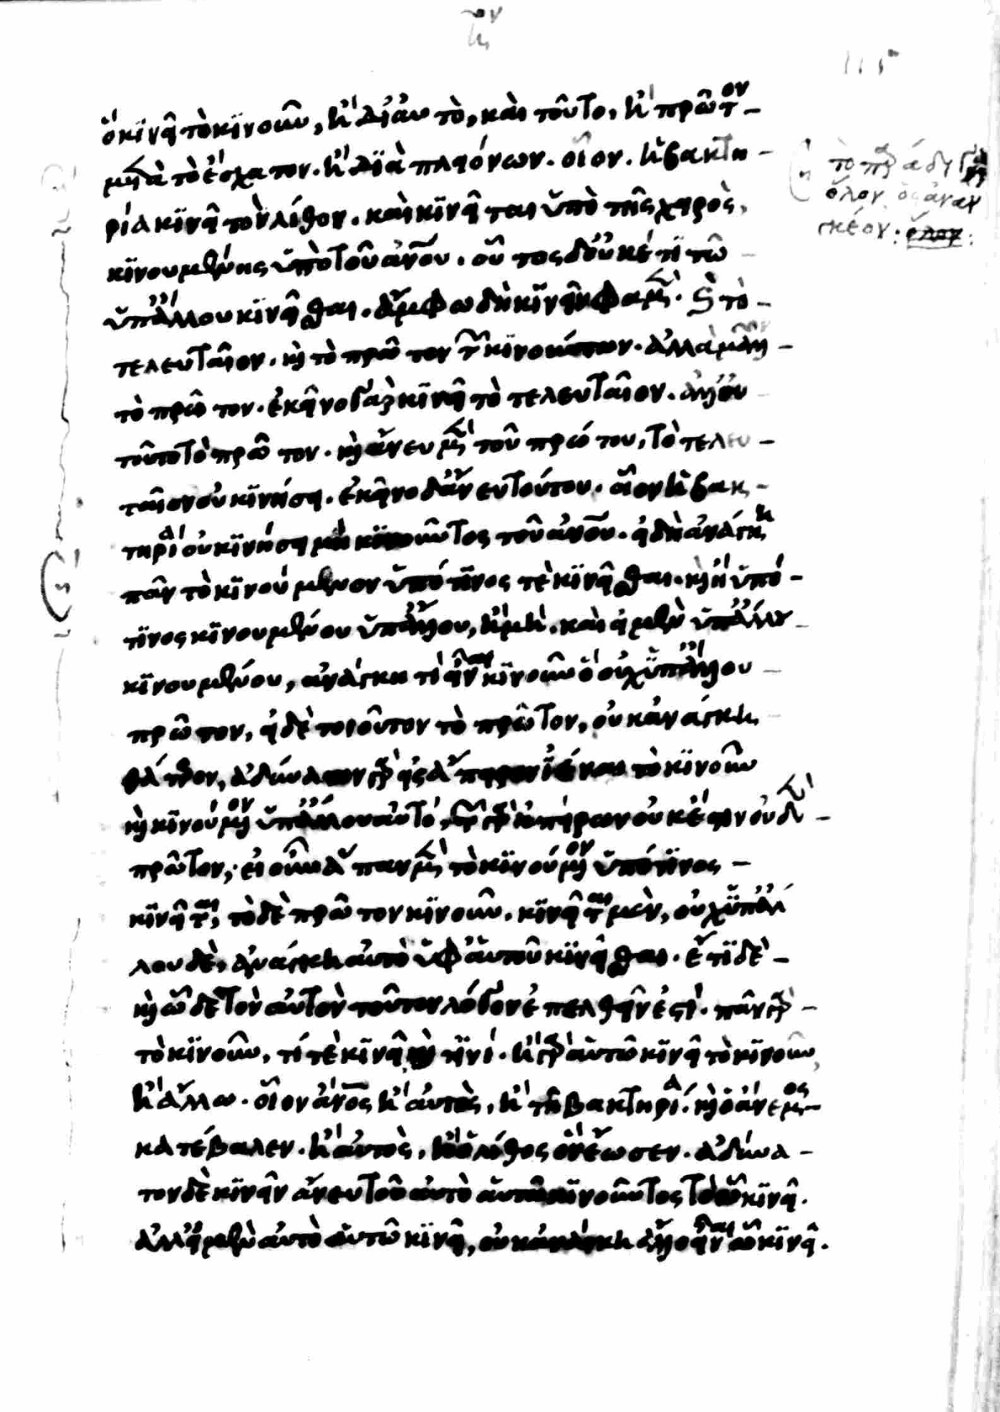 ὃ κινεῖ τὸ κινοῦν, ἢ δι' αὐτὸ, καὶ τοῦτο, ἢ πρῶτον
μετὰ τὸ ἔσχατον. ἢ διὰ πλειόνων. οἷον. ἡ βακτη
ρία κινεῖ τὸν λίθον. καὶ κινεῖται ὑπὸ τῆς χειρὸς,
κινουμένης ὑπὸ τοῦ ἀνου. οὗτος δ' οὐκέτι τῶ
ὑπ' ἄλλου κινεῖσθαι. ἄμφω δὴ κινεῖν φαμὲν. καὶ τὸ
τελευταῖον. καὶ τὸ πρῶτον τῶν κινούντων. ἀλλὰ μᾶλλον
τὸ πρῶτον. ἐκεῖνο γὰρ κινεῖ τὸ τελευταῖον. ἀλλ' οὐ
τοῦτο τὸ πρῶτον. καὶ ἄνευ μὲν τοῦ πρώτου, τὸ τελευ
ταῖον οὐ κινήσει. ἐκεῖνο δ' ἄνευ τούτου. οἷον ἡ βακ
τηρία οὐ κινήσει μὴ κινοῦντος τοῦ ἀνου. εἰ δὴ ἀνάγκη
πᾶν τὸ κινούμενον ὑπό τινος τὲ κινεῖσθαι. καὶ ἢ ὑπό
τινος κινουμένου ὑπ' ἄλλου, ἢ μὴ. καὶ εἰ μὲν ὑπ' ἄλλου
κινουμένου, ἀνάγκη τι εἶναι κινοῦν ὃ οὐχ ὑπ' ἄλλου
πρῶτον, εἰ δὲ τοιοῦτον τὸ πρῶτον, οὐκ ἀνάγκη
θάτερον, ἀδύνατον γὰρ εἰς ἄπειρον ἰέναι τὸ κινοῦν
καὶ κινούμενον ὑπ' ἄλλου αὐτό, τῶν γὰρ ἀπείρων οὐκ ἔστιν οὐδὲν
πρῶτον, εἰ οὖν ἅπαν μὲν τὸ κινούμενον ὑπό τινος
κινεῖται, τὸ δὲ πρῶτον κινοῦν. κινεῖται μὲν, οὐχ ὑπ' ἄλ
λου δὲ, ἀνάγκη αὐτὸ ὑφ' αὑτοῦ κινεῖσθαι. ἔτι δὲ
καὶ ὧδε τὸν αὐτὸν τοῦτον λόγον ἐπελθεῖν ἐστὶ. πᾶν γὰρ
τὸ κινοῦν, τί τὲ κινεῖ καὶ τινί. ἢ γὰρ αὑτῶ κινεῖ τὸ κινοῦν,
ἢ ἄλλω. οἷον ἄνος ἢ αὐτὸς, ἢ τῇ βακτηρία. καὶ ὁ ἄνεμος
κατέβαλεν. ἢ αὐτὸς, ἢ ὁ λίθος ὃν ἔωσεν. ἀδύνα
τον δὲ κινεῖν ἄνευ τοῦ αὐτὸ αὑτῶ κινοῦντος τὸ ὧ κινεῖ.
ἀλλ' εἰ μὲν αὐτὸ αὑτῶ κινεῖ, οὐκ ἀνάγκη ἄλλο εἶναι ὧ κινεῖ.